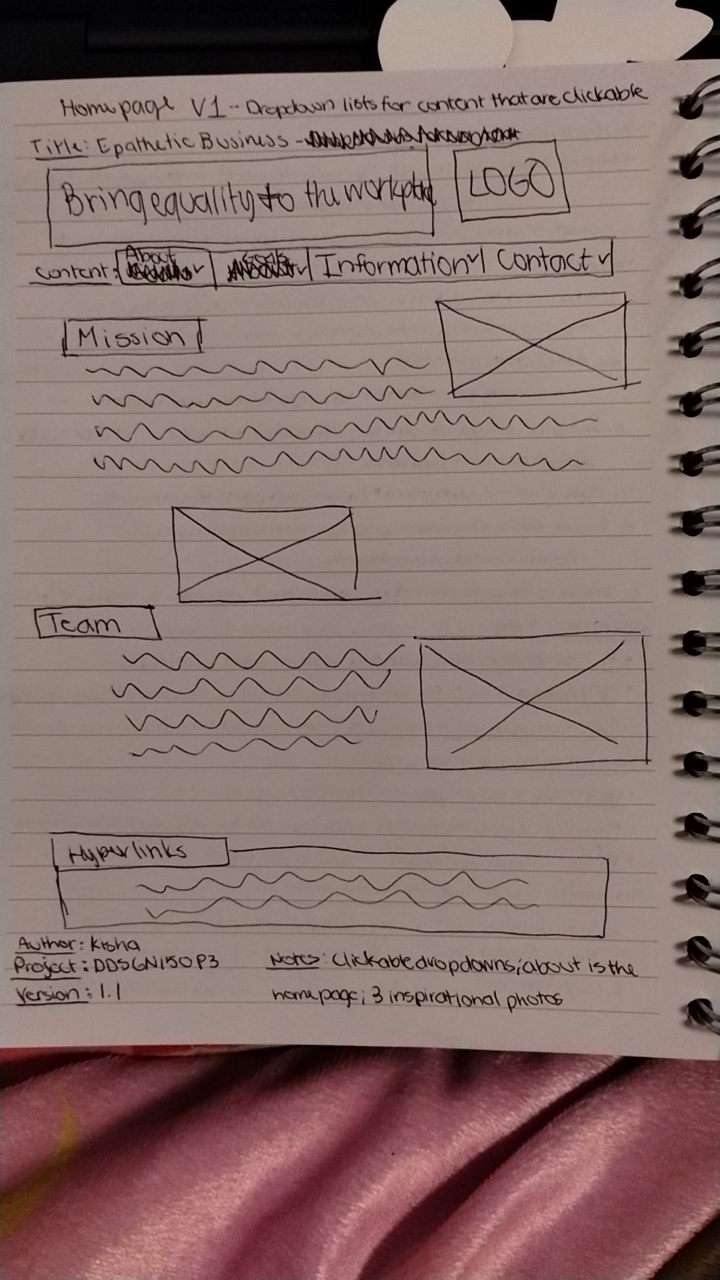 Homepage V1 -- Dropdown lists for content that are clickable
Title: Epathetic Business -
Bring equality to the workplace
LOGO
Content: About Information Contact
Mission
Team
Hyperlinks
Author: Krsha
Project: DDSGN150P3
Version: 1.1
Notes: Clickable dropdowns; about is the
homepage; 3 inspirational photos